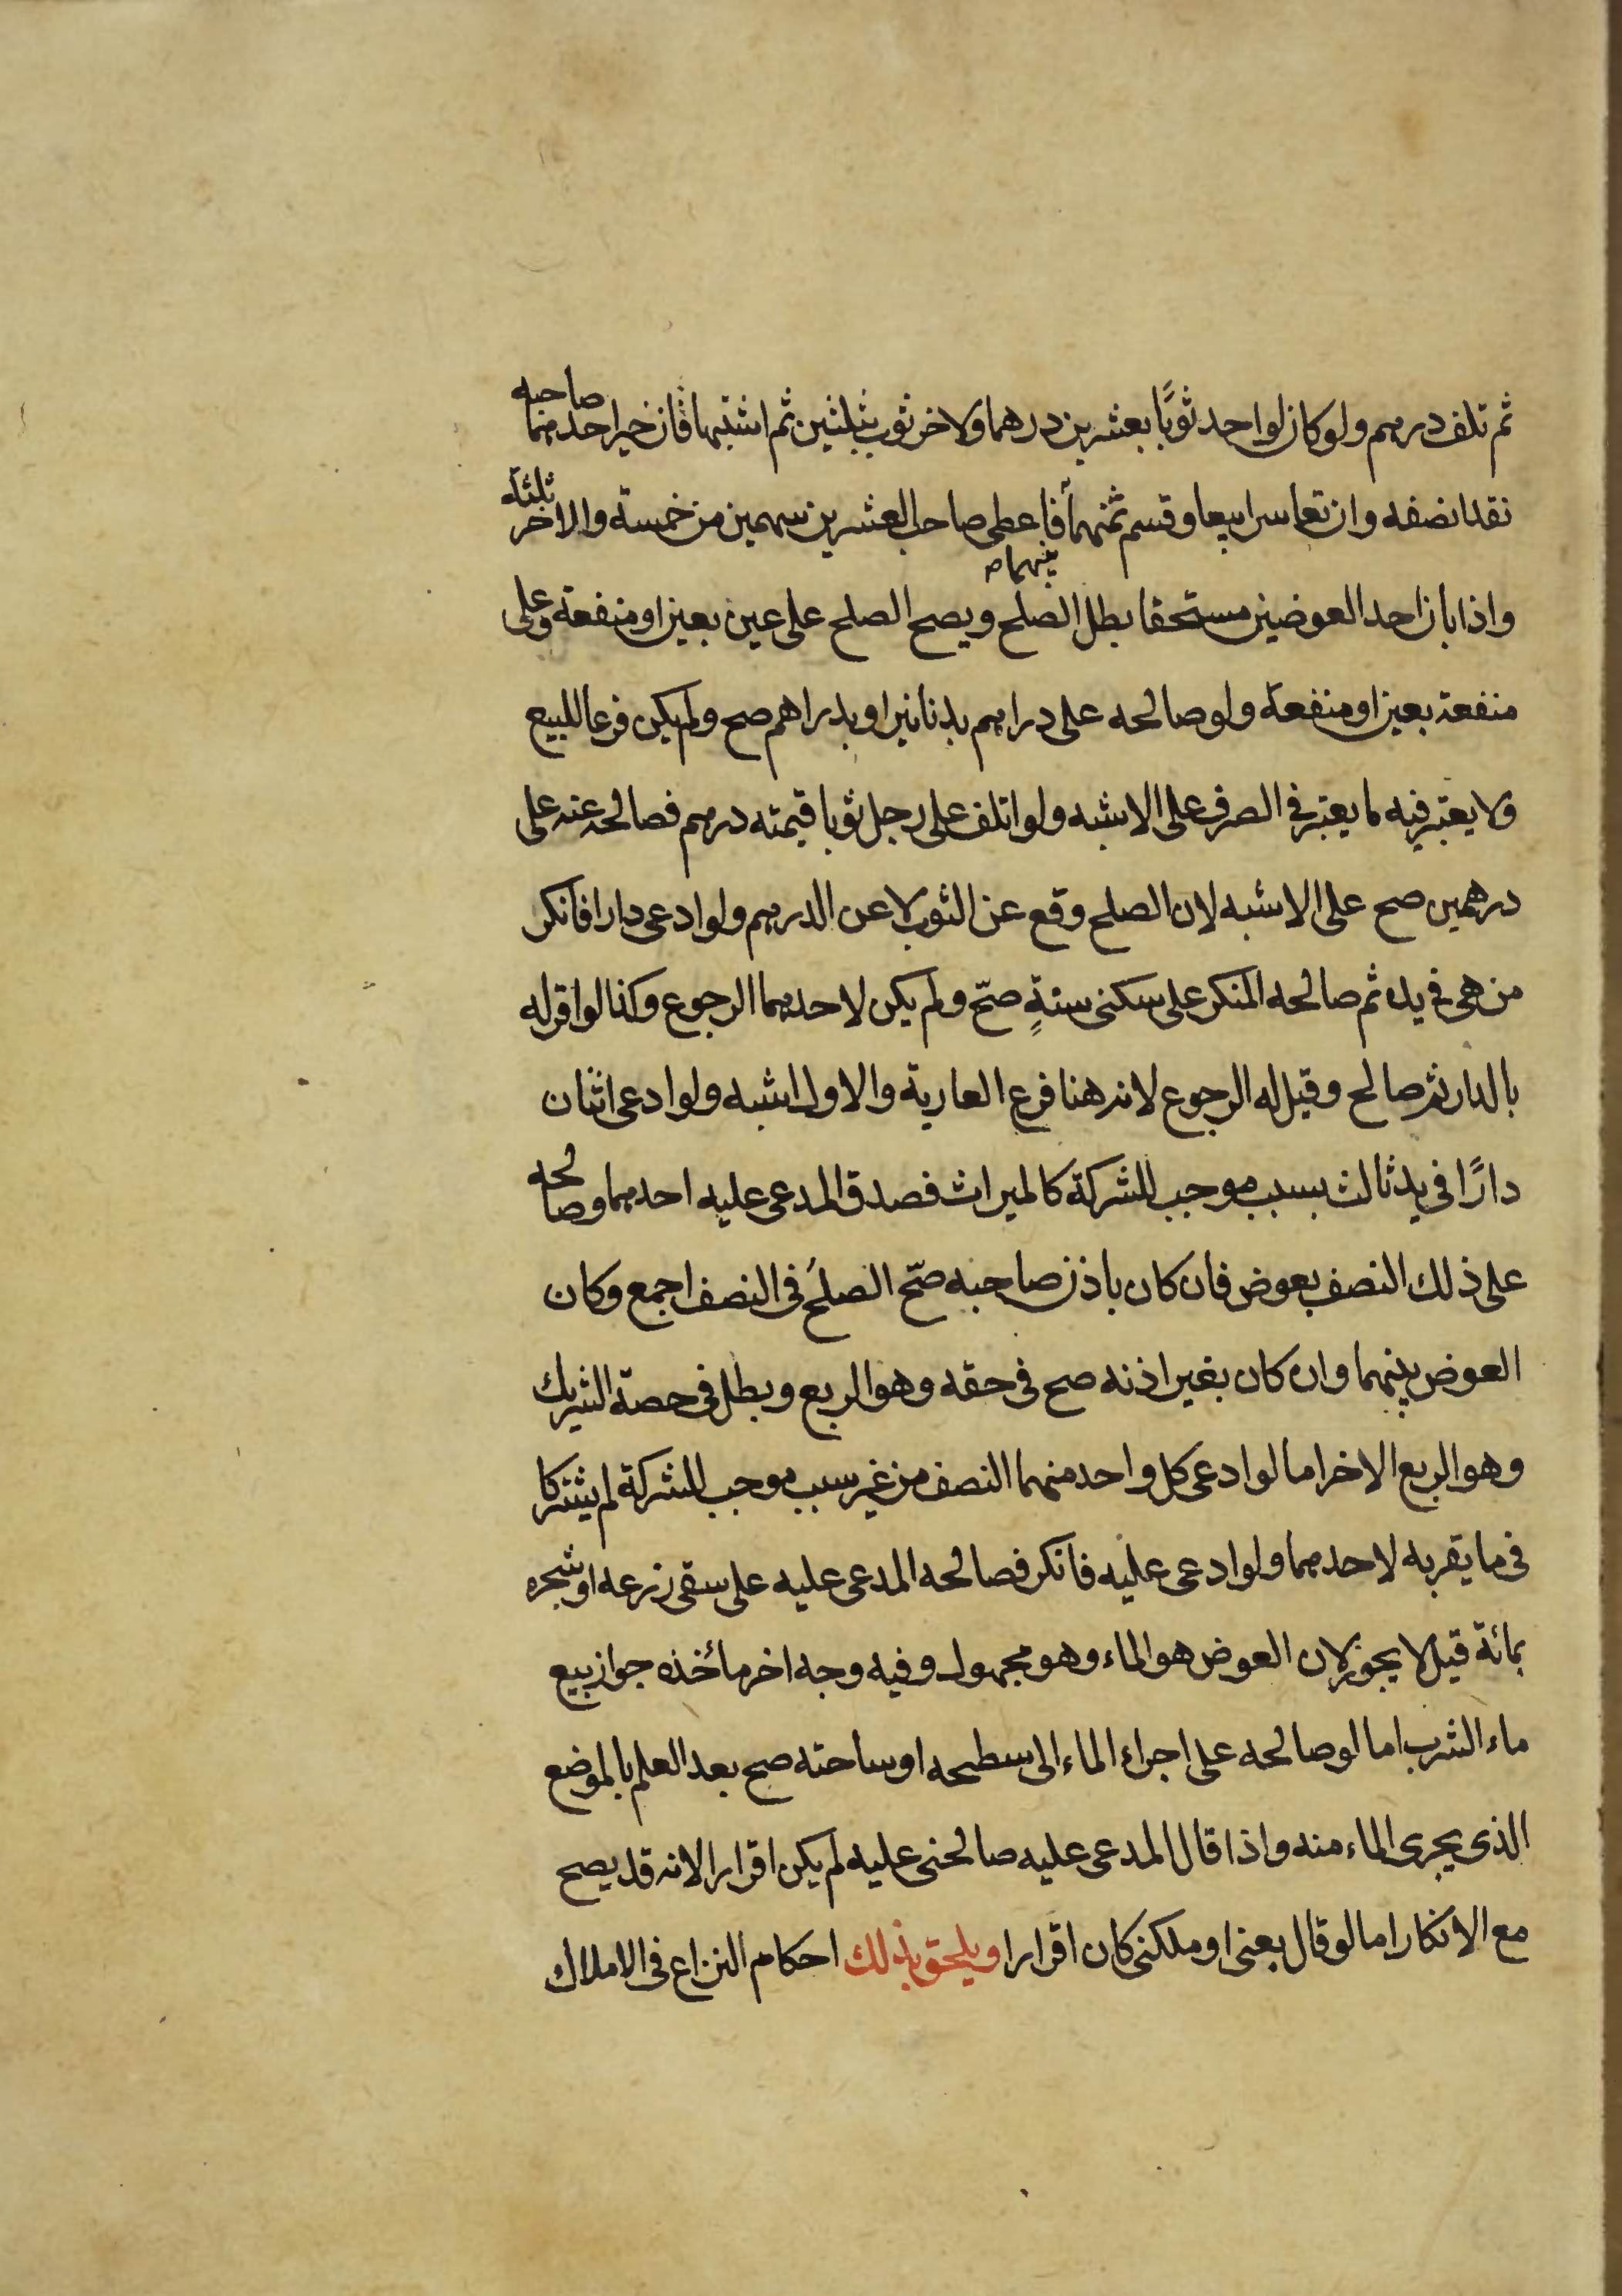 ثم تلف درهم ولو كان لواحد ثوبًا بعشرين درهما ولاخر ثوب بثلثين ثم اشتبها فان خير احدهما صاحبه
نقد انصفه وان تعاسرا بيعا وقسم ثمنهما بينهما فاعطى صاحب العشرين سهمين من خمسة والاخر ثلثة
واذا بان احد العوضين مستحقا بطل الصلح ويصح الصلح على عين بعين او منفعة وعلى
منفعة بعين او منفعة ولو صالحه على دراهم بدنانير او بدراهم صح ولم يكن فرعا للبيع
ولا يعتبر فيه ما يعتبر في الصرف على الاشبه ولو اتلف على رجل ثوبا قيمته درهم فصالحه عنه على
درهمين صح على الاشبه لان الصلح وقع عن الثوب لا عن الدرهم ولو ادعى دارا فانكر
من هى في يده ثم صالحه المنكر على سكنى سنةٍ صحّ ولم يكن لاحدهما الرجوع وكذا لو اقر له
بالدار ثم صالح وقيل له الرجوع لانه هنا فرع العارية والاول اشبه ولو ادعى اثنان
دارًا في يد ثالث بسبب موجب للشركة كالميراث فصدق المدعى عليه احدهما وصالحه
على ذلك النصف بعوض فان كان باذن صاحبه صحّ الصلحُ في النصف اجمع وكان
العوض بينهما وان كان بغير اذنه صح في حقه وهو الربع وبطل في حصة الشريك
وهو الربع الاخر اما لو ادعى كل واحد منهما النصف من غير سبب موجب للشركة لم يشتركا
في ما يقر به لاحدهما ولو ادعى عليه فانكر فصالحه المدعى عليه على سقى زرعه او شجره
بمائة قيل لا يجوز لان العوض هو الماء وهو مجهول وفيه وجه اخر مأخذه جواز بيع
ماء الشرب اما لو صالحه على اجراء الماء الى سطحه او ساحته صح بعد العلم بالموضع
الذى يجرى الماء منه واذا قال المدعى عليه صالحنى عليه لم يكن اقرارا لانه قد يصح
مع الانكار اما لو قال بعنى او ملكنى كان اقرارا ويلحق بذلك احكام النزاع في الاملاك